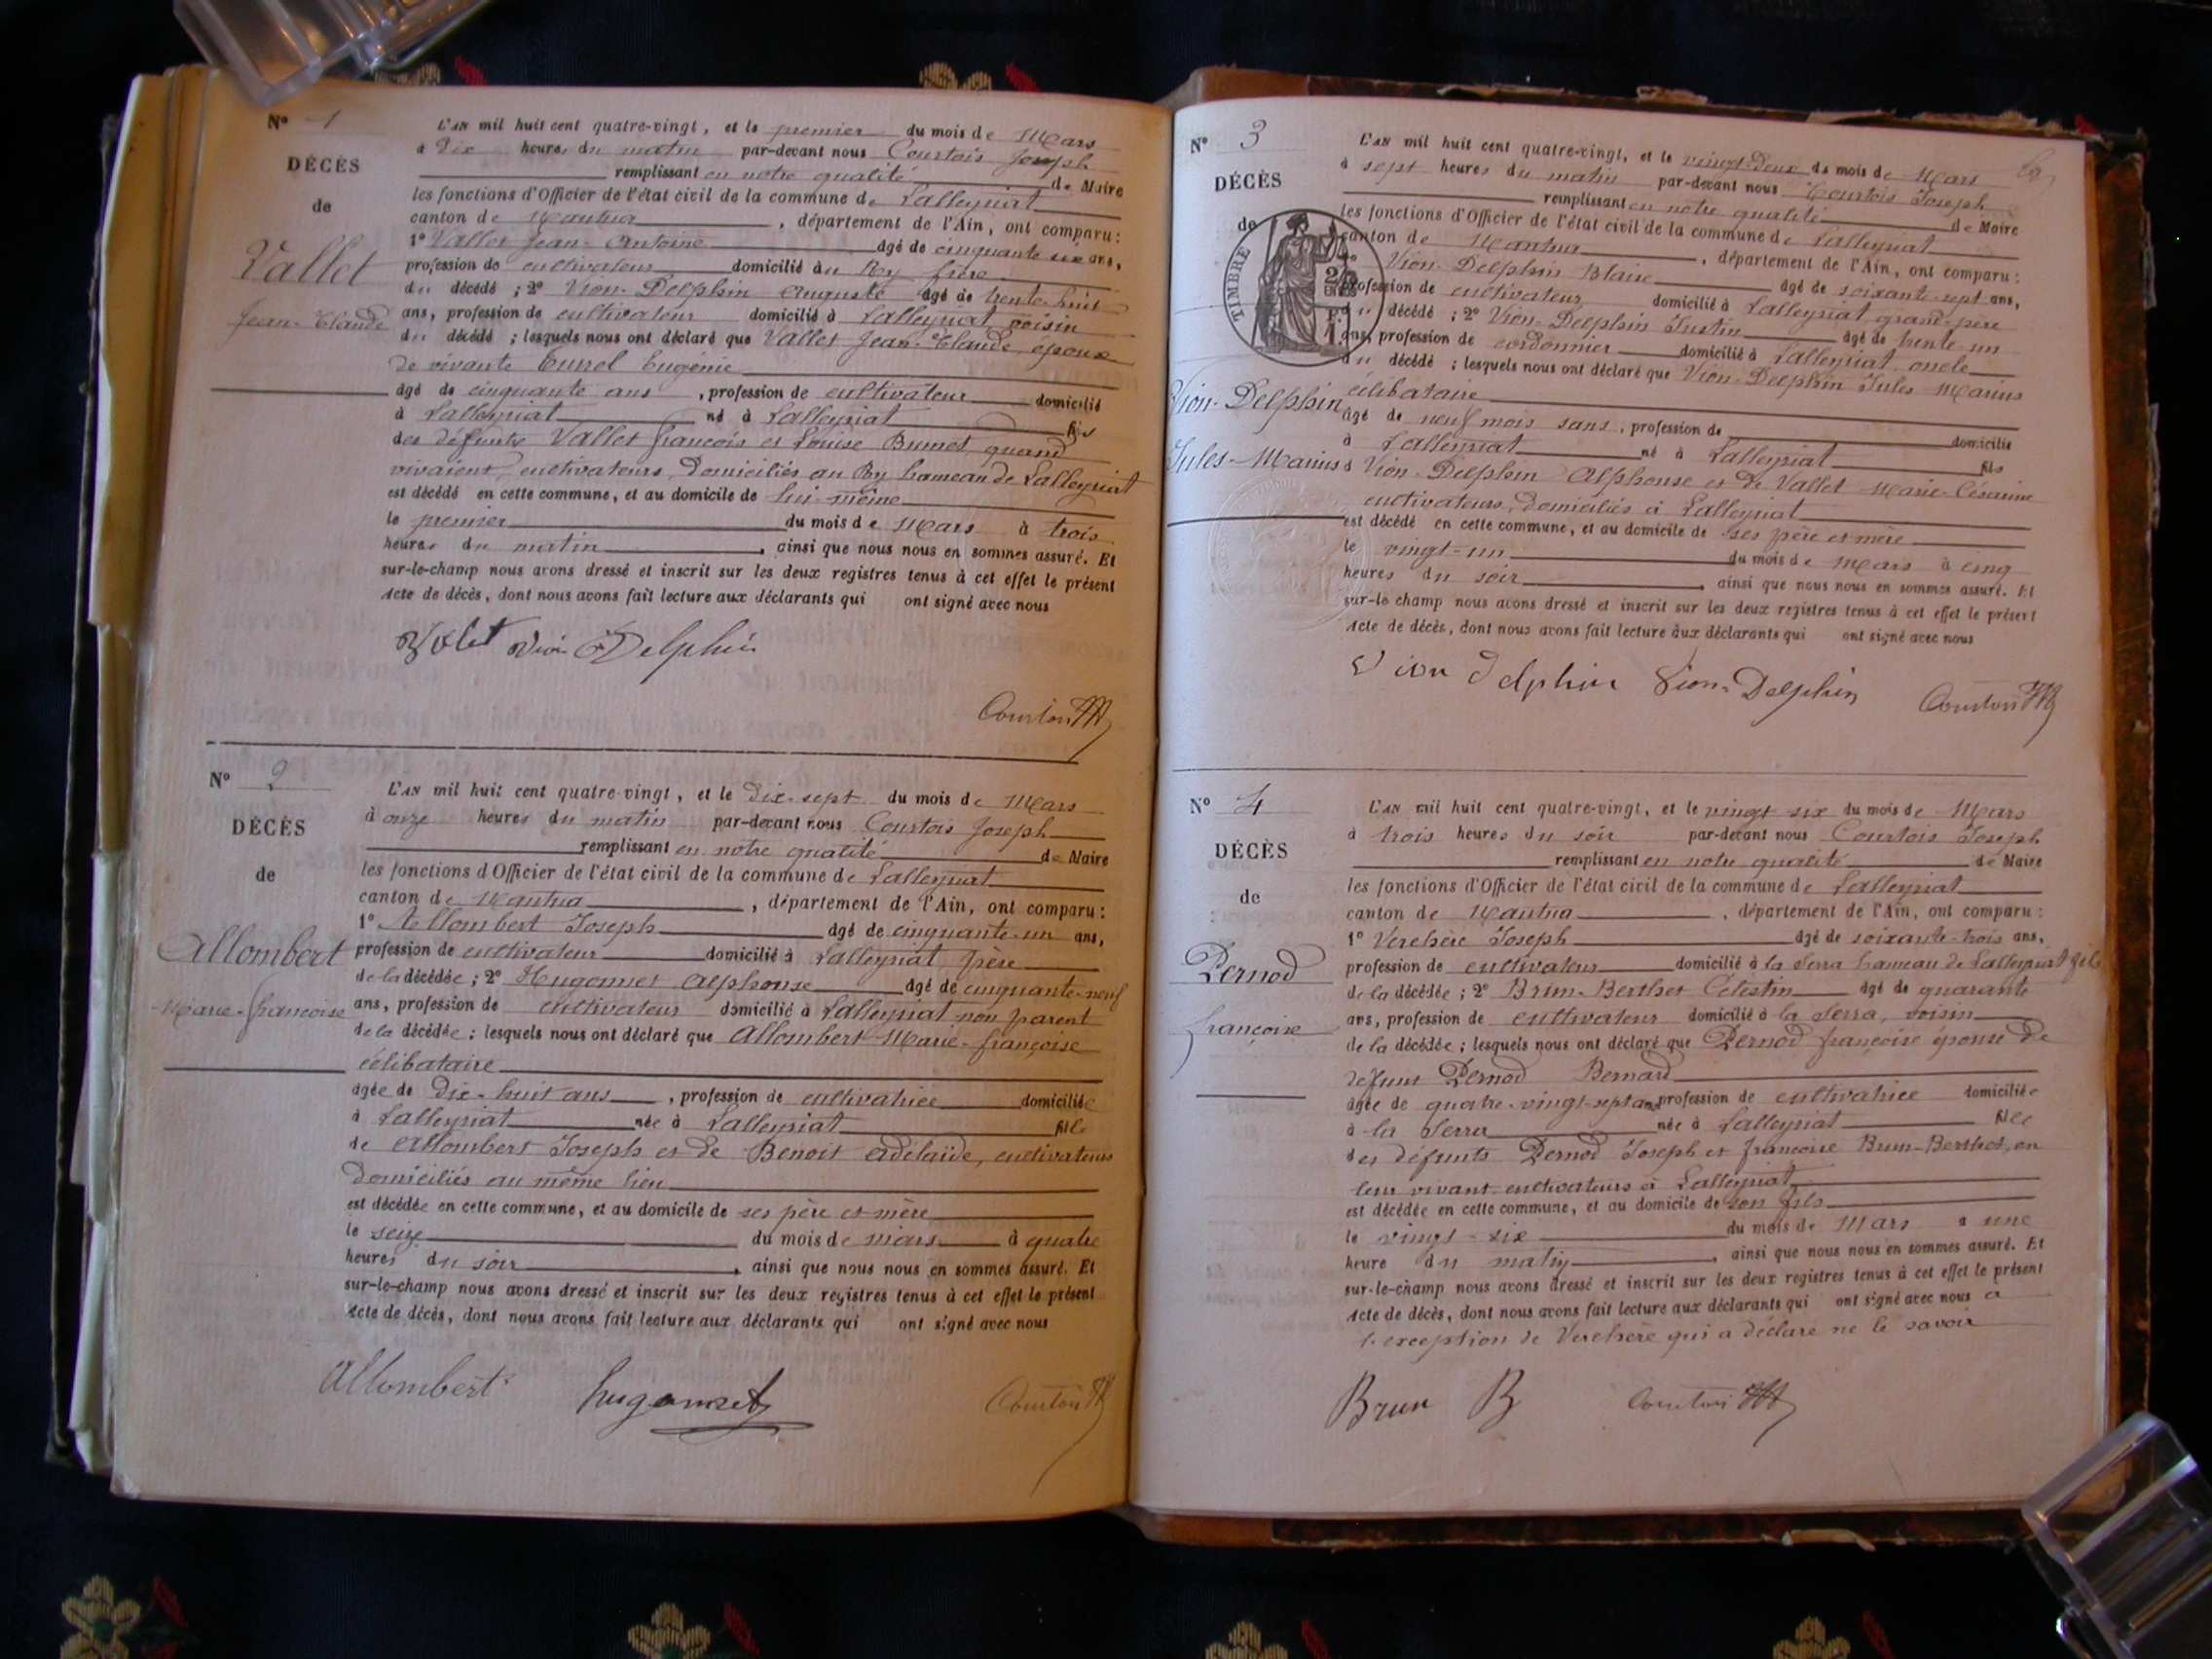 N° 1
DÉCÈS
de
Vallet
Jean-Claude
L'AN mil huit cent quatre-vingt, et le premier du mois de Mars
à dix heures du matin par-devant nous Courtois Joseph
remplissant en notre qualité de Maire
les fonctions d'Officier de l'état civil de la commune de Lalleyriat
canton de Nantua, département de l'Ain, ont comparu:
1° Vallet Jean-Antoine âgé de cinquante six ans,
profession de cultivateur domicilié au Ry frère
du décédé; 2° Vion-Delphin Auguste âgé de trente-huit
ans, profession de cultivateur domicilié à Lalleyriat voisin
du décédé; lesquels nous ont déclaré que Vallet Jean-Claude, époux
de vivante Eugénie
âgé de cinquante ans, profession de cultivateur domicilié
à Lalleyriat né à Lalleyriat fils
des défunts Vallet françois et Louise Brunet, quand
vivaient, cultivateurs, domiciliés au Ry hameau de Lalleyriat
est décédé en cette commune, et au domicile de lui-même
le premier du mois de Mars à trois
heures du matin, ainsi que nous nous en sommes assuré. Et
sur-le-champ nous avons dressé et inscrit sur les deux registres tenus à cet effet le présent
Acte de décès, dont nous avons fait lecture aux déclarants qui ont signé avec nous
Vion Delphin
Courtois
N° 2
DÉCÈS
de
Allombert
Marie-françoise
L'AN mil huit cent quatre-vingt, et le dix-sept du mois de Mars
à onze heures du matin par-devant nous Courtois Joseph
remplissant en notre qualité de Maire
les fonctions d'Officier de l'état civil de la commune de Lalleyriat
canton de Nantua, département de l'Ain, ont comparu:
1° Allombert Joseph âgé de cinquante-un ans,
profession de cultivateur domicilié à Lalleyriat, père
de la décédée; 2° Hugonnet Alphonse âgé de cinquante-neuf
ans, profession de cultivateur domicilié à Lalleyriat non parent
de la décédée; lesquels nous ont déclaré que Allombert Marie-françoise
célibataire
âgée de dix-huit ans, profession de cultivatrice domiciliée
à Lalleyriat née à Lalleyriat fille
de Allombert Joseph et de Benoit Adélaïde, cultivateurs
domiciliés au même lieu
est décédée en cette commune, et au domicile de ses père et mère
le seize du mois de mars à quatre
heures du soir, ainsi que nous nous en sommes assuré. Et
sur-le-champ nous avons dressé et inscrit sur les deux registres tenus à cet effet le présent
Acte de décès, dont nous avons fait lecture aux déclarants qui ont signé avec nous
Allombert hugonnet Courtois
N° 3
DÉCÈS
de
TIMBRE
Vion-Delphin
Jules-Marius
L'AN mil huit cent quatre-vingt, et le vingt-deux du mois de Mars
à sept heures du matin par-devant nous Courtois Joseph
remplissant en notre qualité de Maire
les fonctions d'Officier de l'état civil de la commune de Lalleyriat
canton de Nantua, département de l'Ain, ont comparu:
Vion-Delphin Blaise âgé de soixante-sept ans,
profession de cultivateur domicilié à Lalleyriat, grand-père
du décédé; 2° Vion-Delphin Justin âgé de trente-un
ans, profession de cordonnier domicilié à Lalleyriat, oncle
du décédé; lesquels nous ont déclaré que Vion-Delphin Jules Marius
célibataire
âgé de neuf mois sans, profession de domicilié
à Lalleyriat né à Lalleyriat fils
de Vion-Delphin Alphonse et de Vallet Marie-Césarine
cultivateurs, domiciliés à Lalleyriat
est décédé en cette commune, et au domicile de ses père et mère
le vingt-un du mois de Mars à cinq
heures du soir, ainsi que nous nous en sommes assuré. Et
sur-le-champ nous avons dressé et inscrit sur les deux registres tenus à cet effet le présent
Acte de décès, dont nous avons fait lecture aux déclarants qui ont signé avec nous
Vion Delphin Vion-Delphin Courtois
N° 4
DÉCÈS
de
Pernod
françoise
L'AN mil huit cent quatre-vingt, et le vingt six du mois de Mars
à trois heures du soir par-devant nous Courtois Joseph
remplissant en notre qualité de Maire
les fonctions d'Officier de l'état civil de la commune de Lalleyriat
canton de Nantua, département de l'Ain, ont comparu:
1° Verchère Joseph âgé de soixante-trois ans,
profession de cultivateur domicilié à la Serra hameau de Lalleyriat fils
de la décédée; 2° Brun-Berthet Célestin âgé de quarante
ans, profession de cultivateur domicilié à la Serra, voisin
de la décédée; lesquels nous ont déclaré que Pernod françoise épouse de
defunt Pernod Bernard
âgée de quatre-vingt-sept ans, profession de cultivatrice domiciliée
à la Serra née à Lalleyriat fille
des défunts Pernod Joseph et françoise Brun-Berthet, en
leur vivant cultivateurs à Lalleyriat
est décédée en cette commune, et au domicile de son fils
le vingt-six du mois de Mars à une
heure du matin, ainsi que nous nous en sommes assuré. Et
sur-le-champ nous avons dressé et inscrit sur les deux registres tenus à cet effet le présent
Acte de décès, dont nous avons fait lecture aux déclarants qui ont signé avec nous a
l'exception de Verchère qui a déclaré ne le savoir
Brun B Courtois